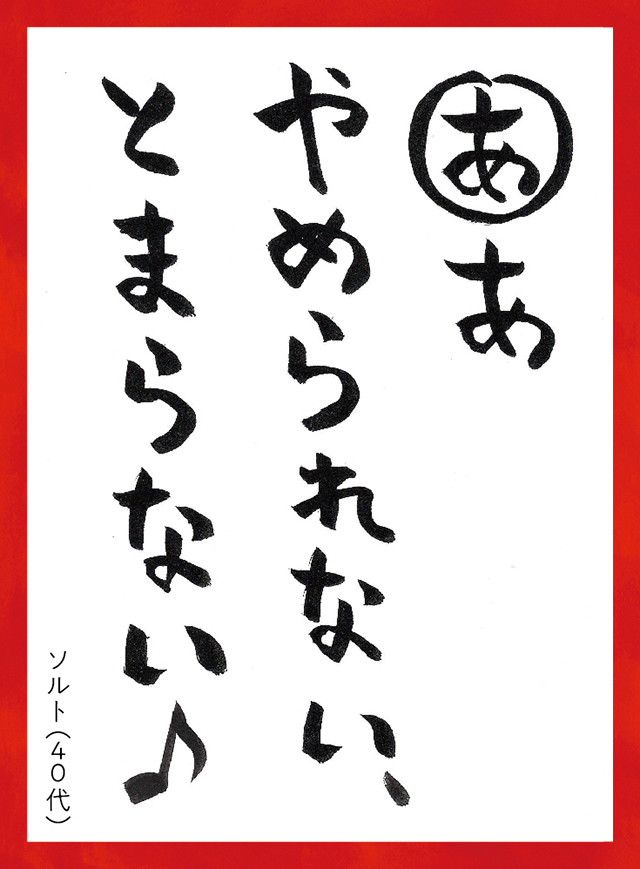 ああ
やめられない、
とまらない♪
ソルト(40代)